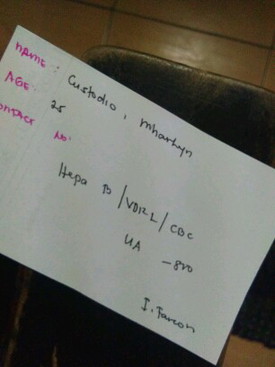 NAME: Custodio, Mharlyn
AGE: 25
CONTACT NO:
Hepa B / VDRL / CBC
UA -800
J. Farcon